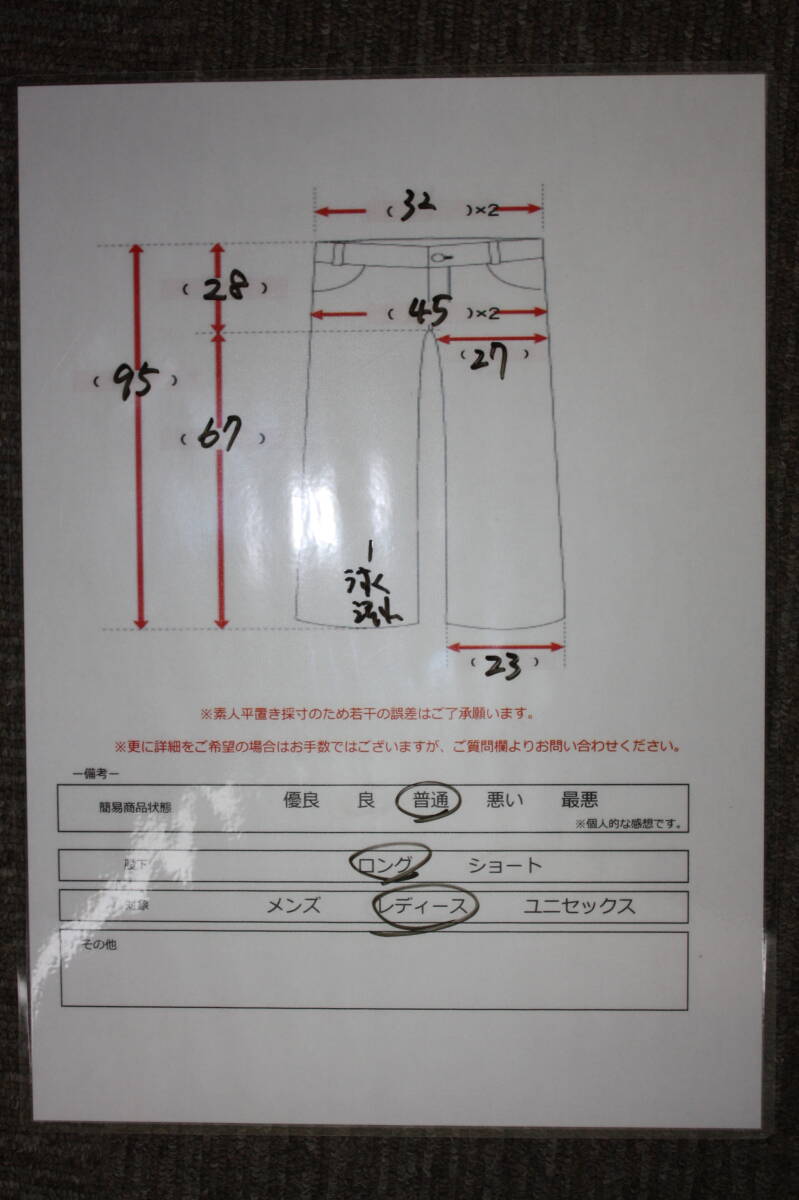 (32)×2
(28)
(45)×2
(27)
(95)
(67)
(23)
※素人平置き採寸のため若干の誤差はご了承願います。
※更に詳細をご希望の場合はお手数ではございますが、ご質問欄よりお問い合わせください。
ー備考ー
簡易商品状態 優良 良 普通 悪い 最悪
※個人的な感想です。
股下 ロング ショート
対象 メンズ レディース ユニセックス
その他